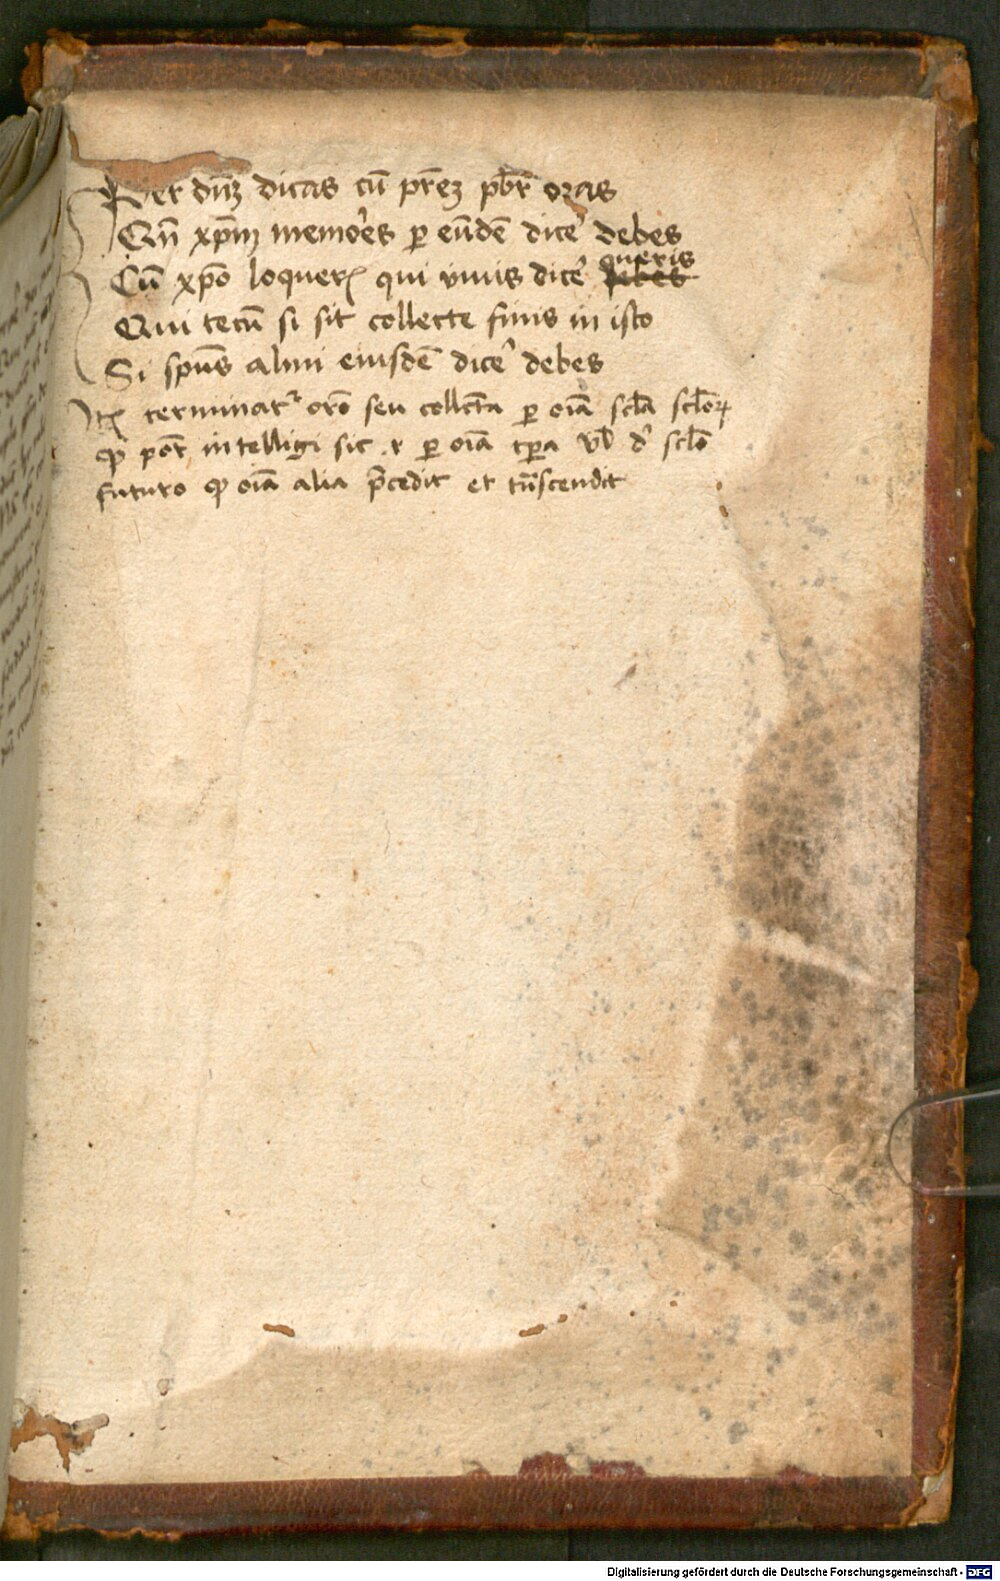 Per dūꝫ dicas cū pr̄eꝫ pb̄r oras
Qn̄ xp̄m memo᷑es ꝑ eūdē dice᷑ debes
queris
Cū xp̄o loqueri᷑s qui viuis dice᷑ debes
Qui tecū si sit collecte finis in isto
Si spūs almi eiusdē dice᷑ debes
Itē terminat᷑ or̄o seu collc̄ta ꝑ oīa scl̄a scl̄oꝝ
ꝙ pōt intelligi sic .r ꝑ oīa tꝑa vl̄ d᷑ scl̄o
futuro ꝙ oīa alia p̄cedit et tn̄scendit
Digitalisierung gefördert durch die Deutsche Forschungsgemeinschaft - DFG